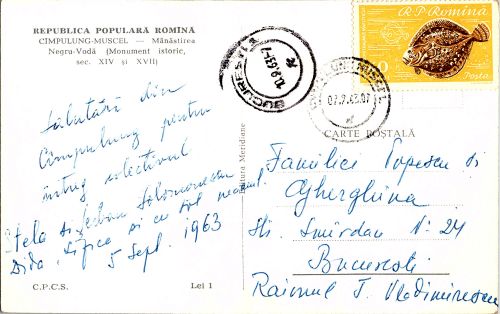 REPUBLICA POPULARĂ ROMÎNĂ
CIMPULUNG-MUSCEL — Mănăstirea
Negru-Vodă (Monument istoric,
sec. XIV și XVII)
R.P. Romînă
Posta
BUCUREȘTI
CARTE POȘTALĂ
Editura Meridiane
Salutări din
Cîmpulung pentru
întreg colectivul
Stela și Solomonescu
Dida și cu tot neamul
5 Sept. 1963
Familiei Popescu și
Gherghina
Str. Smîrdan Nr 24
București
Raionul T. Vladimirescu
C.P.C.S.
Lei 1